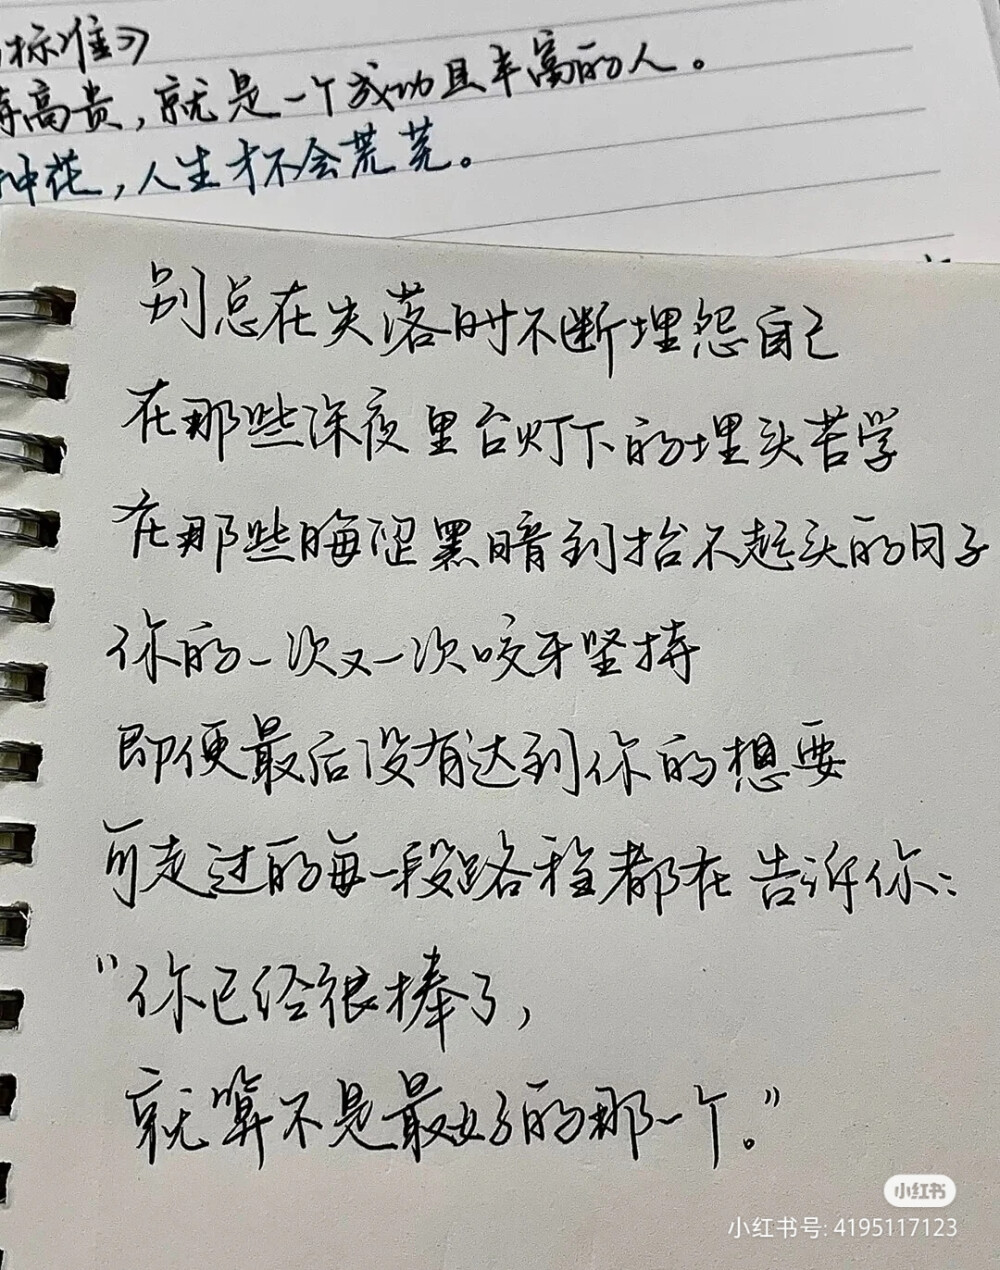 标准》
高贵，就是一个成功且丰富的人。
种花，人生才不会荒芜。
别总在失落时不断埋怨自己
在那些深夜里台灯下的埋头苦学
在那些晦涩黑暗到抬不起头的日子
你的一次又一次咬牙坚持
即便最后没有达到你的想要
可走过的每一段路程都在告诉你：
“你已经很棒了，
就算不是最好的那一个。”
小红书
小红书号: 4195117123